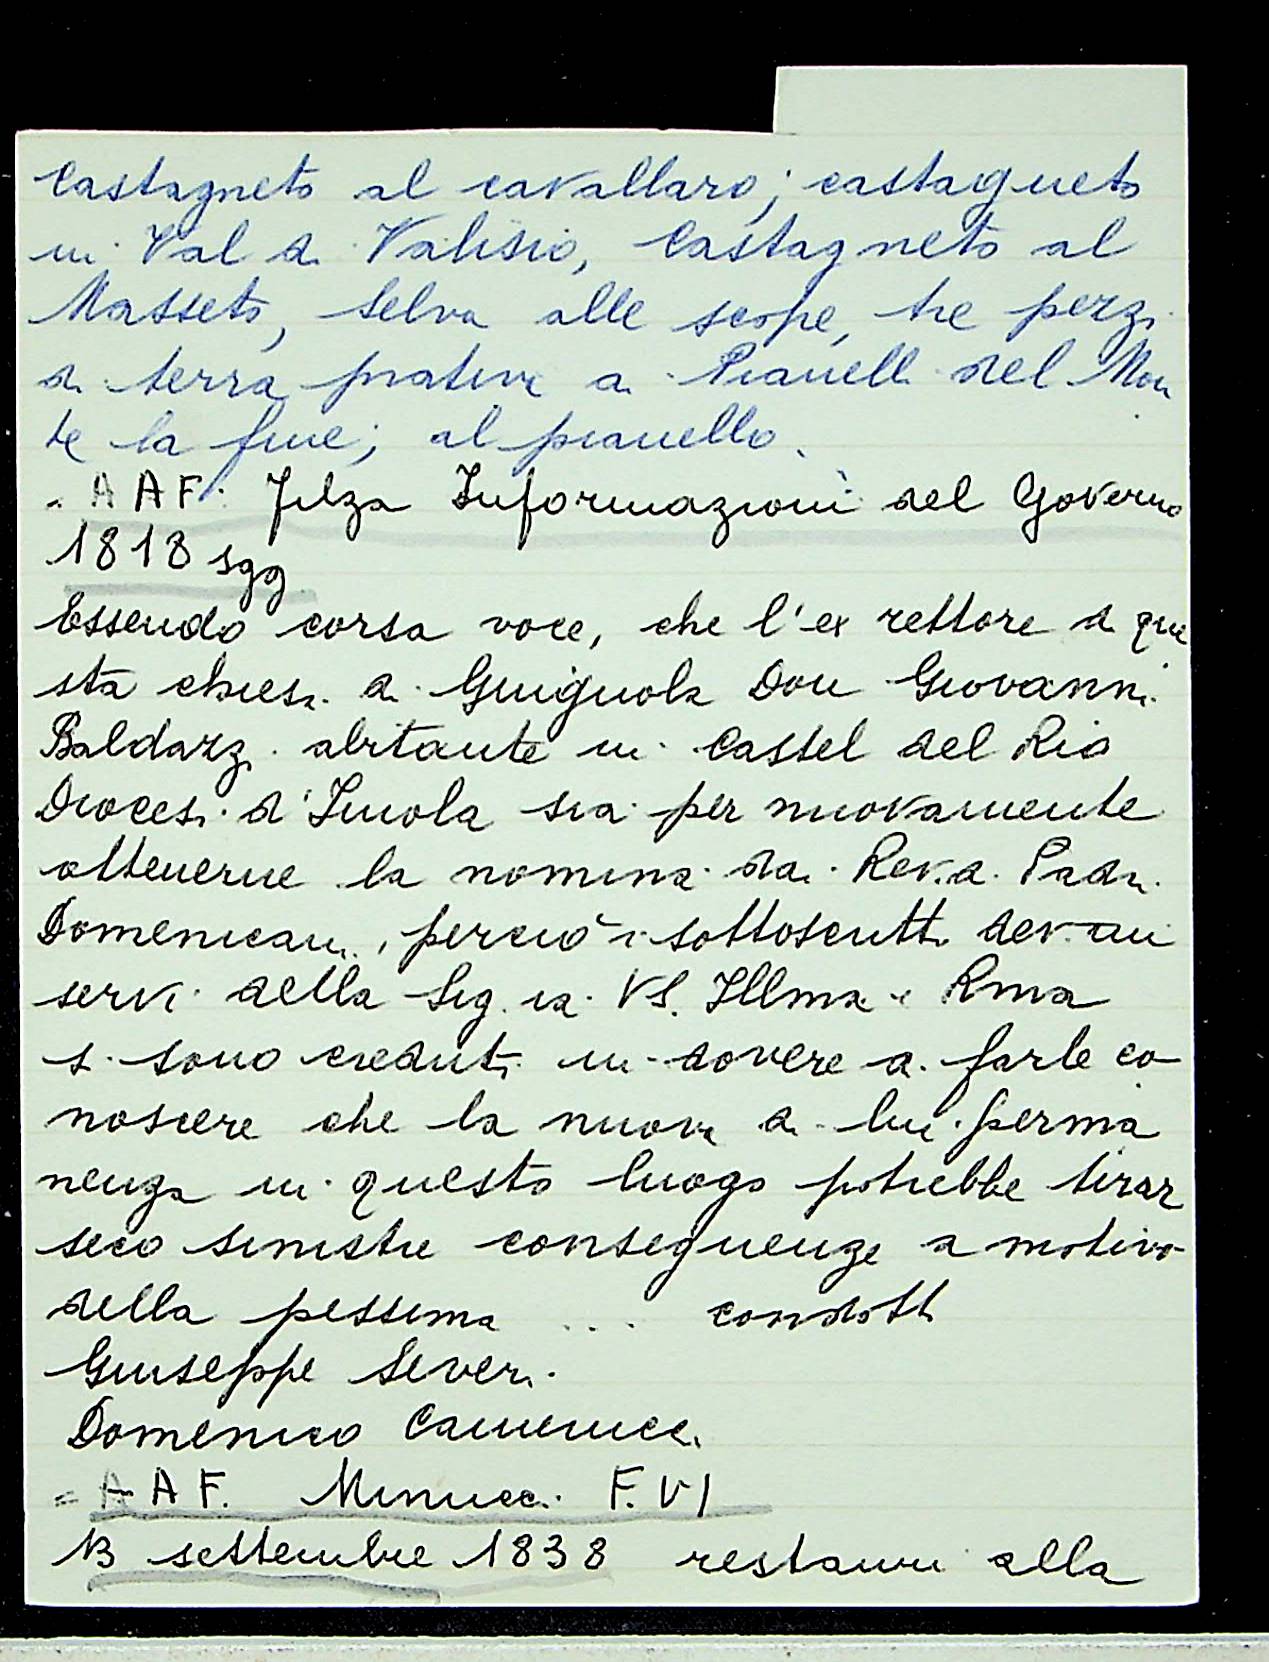 Castagneto al cavallaro; castagneto
in Val di Valisio, Castagneto al
Masseto, Selva alle scope, tre pezzi
di terra prativi ai Pianelli del Mon
te la fine; al pianello.
- A A F. Filza Informazioni del Governo
1818 sgg
Essendo corsa voce, che l'ex rettore di que
sta chiesa di Guignola Don Giovanni
Baldazzi abitante in Castel del Rio
Diocesi d'Imola sia per nuovamente
ottenerne la nomina dai Rev.di Padri
Domenicani, perciò i sottoscritti dev.mi
servi della Sig.ia VS. Illma e Rma
si sono creduti in dovere di farle co
noscere che la nuova di lui perma
nenza in questo luogo potrebbe tirar
seco sinistre conseguenze a motivo
della pessima ... condotta
Giuseppe Severi
Domenico Camerucci
= A A F. Minucci F. VI
13 settembre 1838 restauri alla